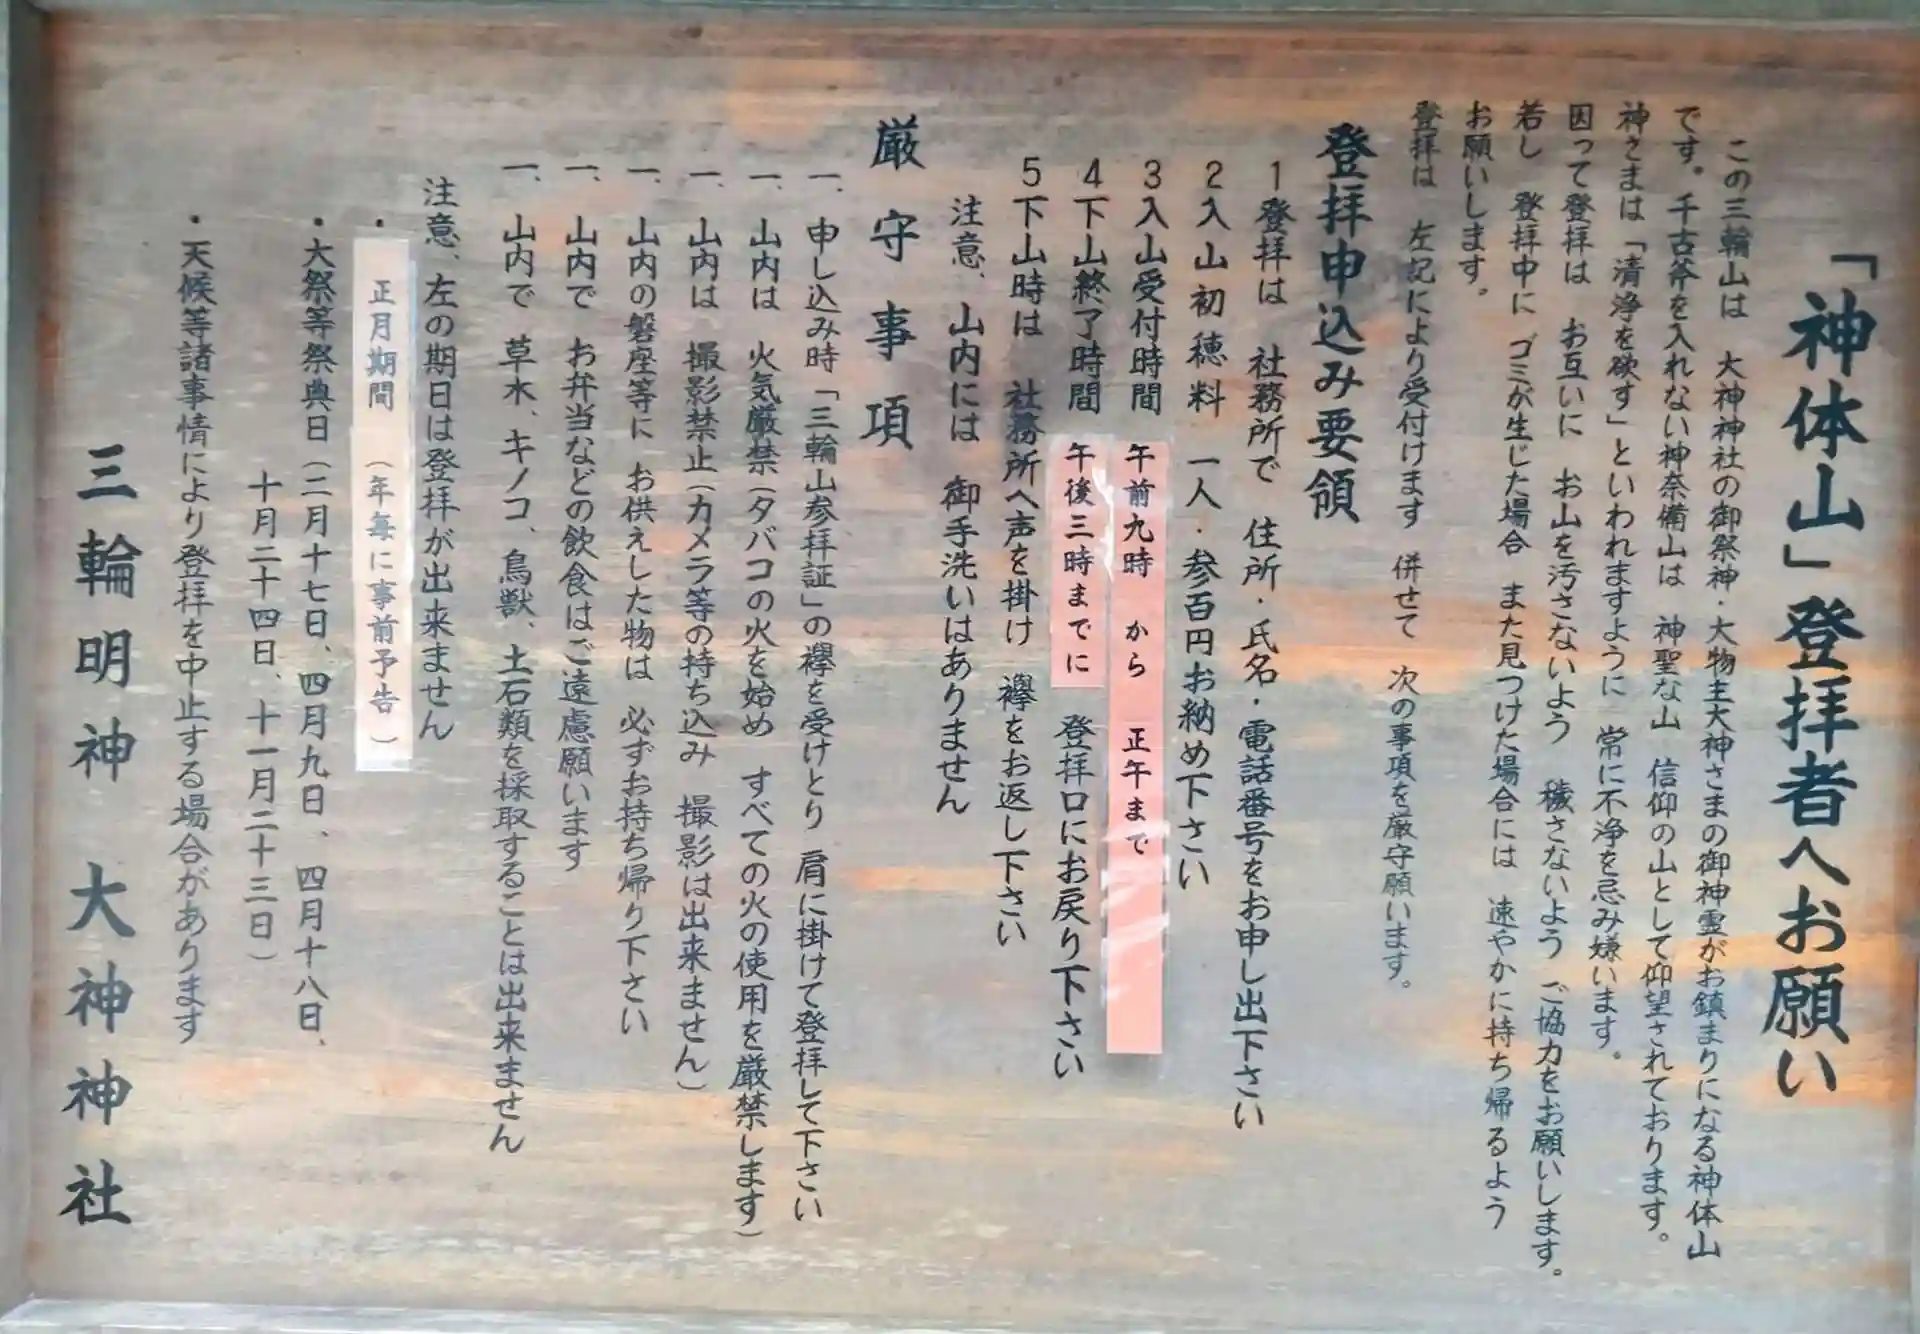 「神体山」登拝者へお願い
この三輪山は 大神神社の御祭神・大物主大神さまの御神霊がお鎮まりになる神体山
です。千古斧を入れない神奈備山は 神聖な山 信仰の山として仰望されております。
神さまは「清浄を欲す」といわれますように 常に不浄を忌み嫌います。
因って登拝は お互いに お山を汚さないよう 穢さないよう ご協力をお願いします。
若し 登拝中に ゴミが生じた場合 また見つけた場合には 速やかに持ち帰るよう
お願いします。
登拝は 左記により受付けます 併せて 次の事項を厳守願います。
登拝申込み要領
1登拝は 社務所で 住所・氏名・電話番号をお申し出下さい
2入山初穂料 一人・参百円お納め下さい
3入山受付時間 午前九時 から 正午まで
4下山終了時間 午後三時までに 登拝口にお戻り下さい
5下山時は 社務所へ声を掛け 襷をお返し下さい
注意、山内には 御手洗いはありません
厳守事項
一、申し込み時「三輪山参拝証」の襷を受けとり 肩に掛けて登拝して下さい
一、山内は 火気厳禁(タバコの火を始め すべての火の使用を厳禁します)
一、山内は 撮影禁止(カメラ等の持ち込み 撮影は出来ません)
一、山内の磐座等に お供えした物は 必ずお持ち帰り下さい
一、山内で お弁当などの飲食はご遠慮願います
一、山内で 草木、キノコ、鳥獣、土石類を採取することは出来ません
注意、左の期日は登拝が出来ません
・正月期間 (年毎に事前予告)
・大祭等祭典日(二月十七日、四月九日、四月十八日、
十月二十四日、十一月二十三日)
・天候等諸事情により登拝を中止する場合があります
三輪明神 大神神社